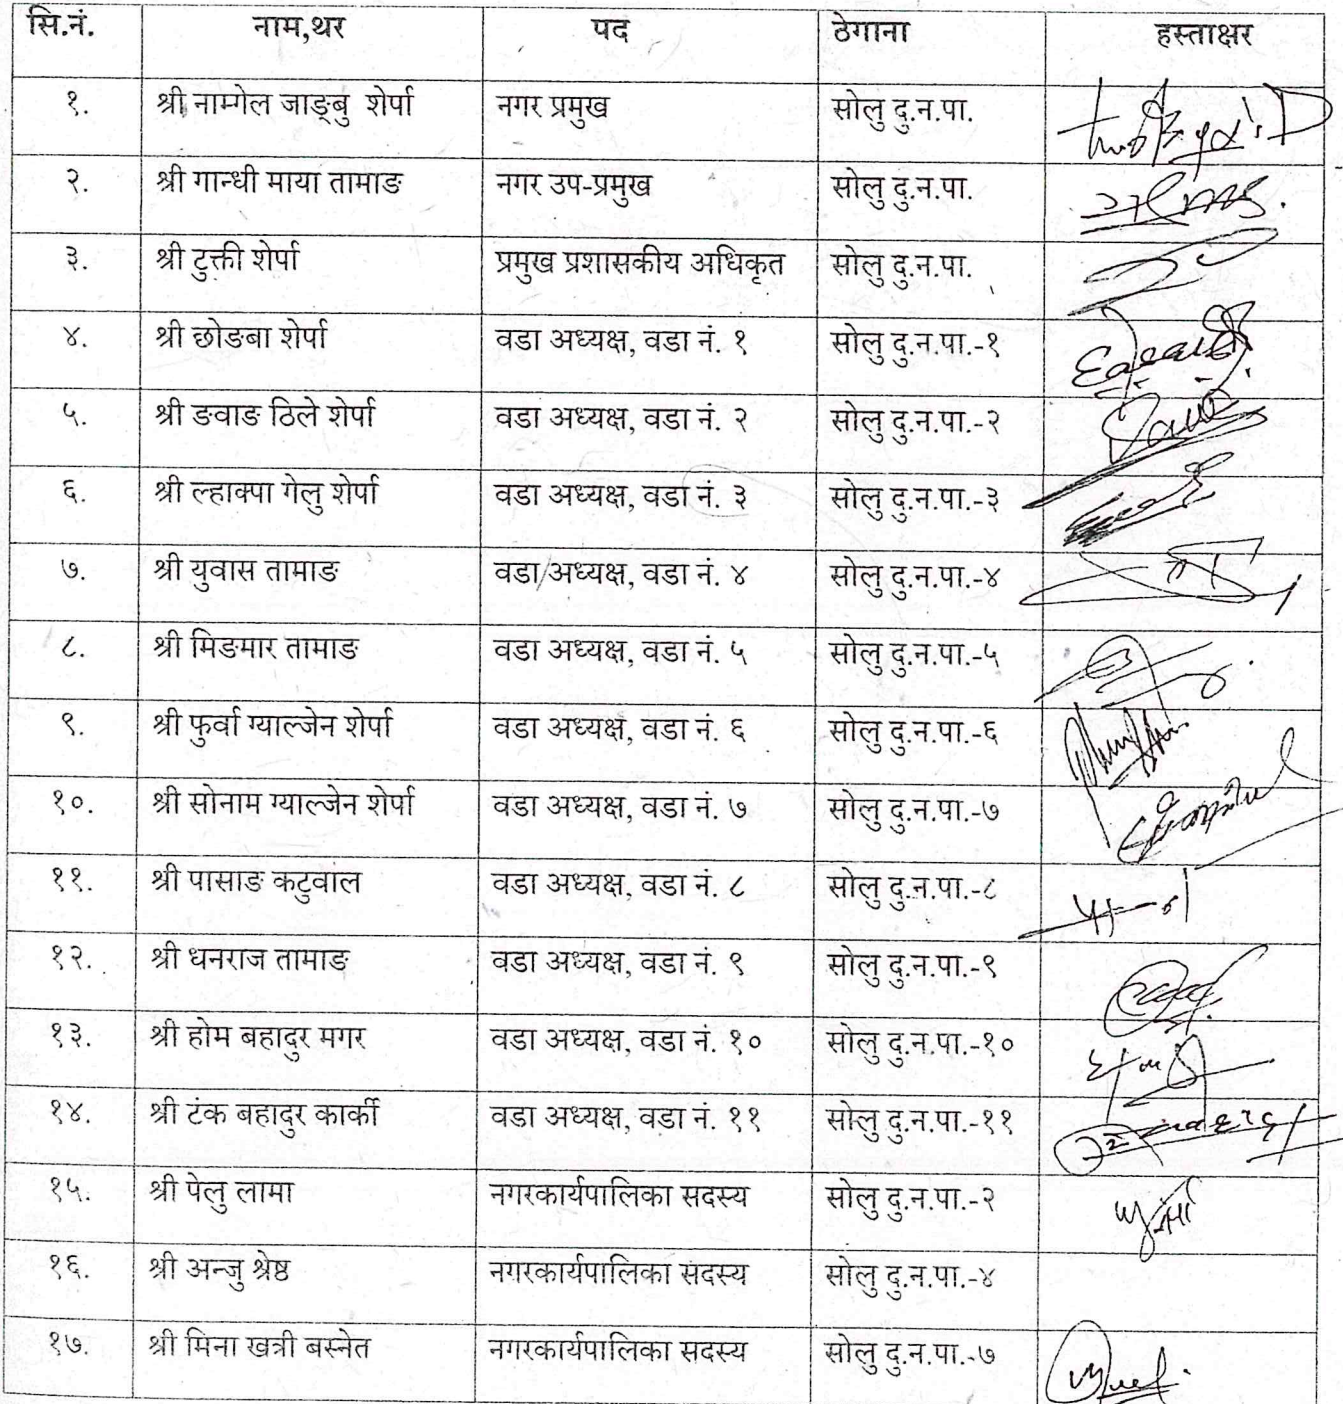 सि.नं. नाम,थर पद ठेगाना हस्ताक्षर
१. श्री नाम्गेल जाङ्बु शेर्पा नगर प्रमुख सोलु दु.न.पा.
२. श्री गान्धी माया तामाङ नगर उप-प्रमुख सोलु दु.न.पा.
३. श्री टुक्ती शेर्पा प्रमुख प्रशासकीय अधिकृत सोलु दु.न.पा.
४. श्री छोङबा शेर्पा वडा अध्यक्ष, वडा नं. १ सोलु दु.न.पा.-१
५. श्री ङवाङ ठिले शेर्पा वडा अध्यक्ष, वडा नं. २ सोलु दु.न.पा.-२
६. श्री ल्हाक्पा गेलु शेर्पा वडा अध्यक्ष, वडा नं. ३ सोलु दु.न.पा.-३
७. श्री युवास तामाङ वडा अध्यक्ष, वडा नं. ४ सोलु दु.न.पा.-४
८. श्री मिङमार तामाङ वडा अध्यक्ष, वडा नं. ५ सोलु दु.न.पा.-५
९. श्री फुर्वा ग्याल्जेन शेर्पा वडा अध्यक्ष, वडा नं. ६ सोलु दु.न.पा.-६
१०. श्री सोनाम ग्याल्जेन शेर्पा वडा अध्यक्ष, वडा नं. ७ सोलु दु.न.पा.-७
११. श्री पासाङ कटुवाल वडा अध्यक्ष, वडा नं. ८ सोलु दु.न.पा.-८
१२. श्री धनराज तामाङ वडा अध्यक्ष, वडा नं. ९ सोलु दु.न.पा.-९
१३. श्री होम बहादुर मगर वडा अध्यक्ष, वडा नं. १० सोलु दु.न.पा.-१०
१४. श्री टंक बहादुर कार्की वडा अध्यक्ष, वडा नं. ११ सोलु दु.न.पा.-११
१५. श्री पेलु लामा नगरकार्यपालिका सदस्य सोलु दु.न.पा.-२
१६. श्री अन्जु श्रेष्ठ नगरकार्यपालिका सदस्य सोलु दु.न.पा.-४
१७. श्री मिना खत्री बस्नेत नगरकार्यपालिका सदस्य सोलु दु.न.पा.-७